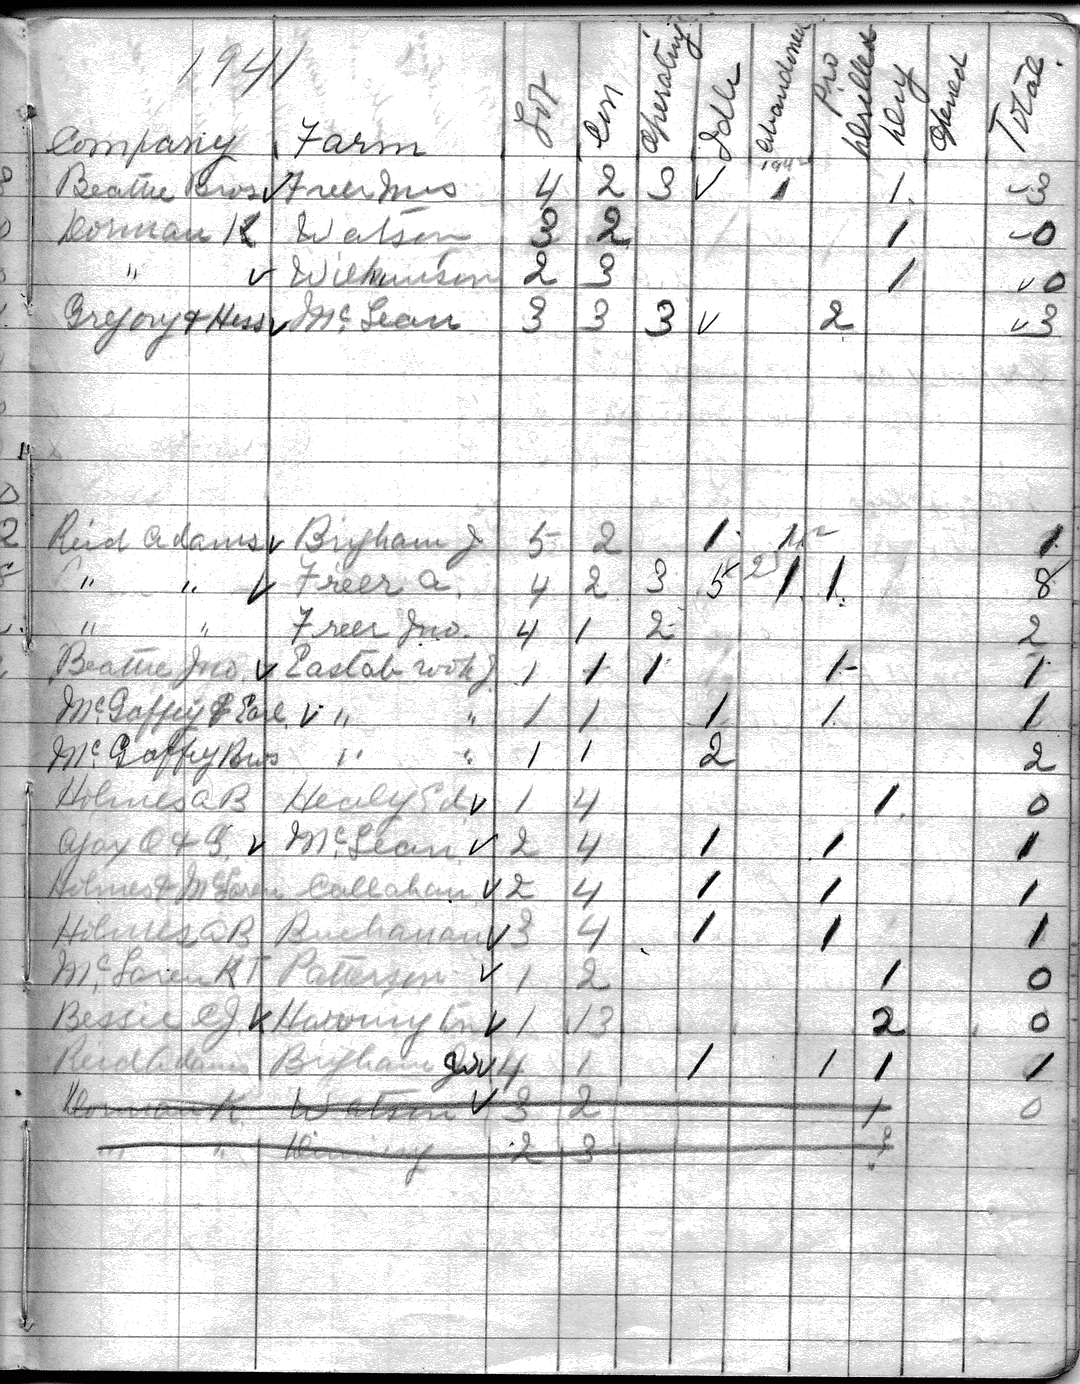 1941
Company Farm Lot Con Operating Idle Abandoned Pro Drilled Dry Opened Total
Beattie Bros ✓ Freer Jno 4 2 3 ✓ 1 1 3
Dorman K Watson 3 2 1 0
" ✓ Wilkinson 2 3 1 ✓ 0
Gregory & Hess ✓ McLean 3 3 3 ✓ 2 ✓ 3
Reid Adams ✓ Brigham J 5 2 1 1 1
" " ✓ Freer A. 4 2 3 5 2 1 1 8
" " Freer Jno. 4 1 2 2
Beattie Jno. ✓ Eastabrook J 1 1 1 1 1
McGaffey & Earl ✓ " " 1 1 1 1 1
McGaffey Bros " " 1 1 2 2
Holmes A B Healy Ed ✓ 1 4 1 0
Ajax O & G. ✓ McLean ✓ 2 4 1 1 1
Holmes & McLaren Callahan ✓ 2 4 1 1 1
Holmes A B Buchanan ✓ 3 4 1 1 1
McLaren K T Patterson ✓ 1 2 1 0
Bessie C J ✓ ✓ 1 13 2 0
Reid Adams Brigham Jno ✓ 4 1 1 1 1 1
Dorman K. Watson ✓ 3 2 1 0
" " 2 3